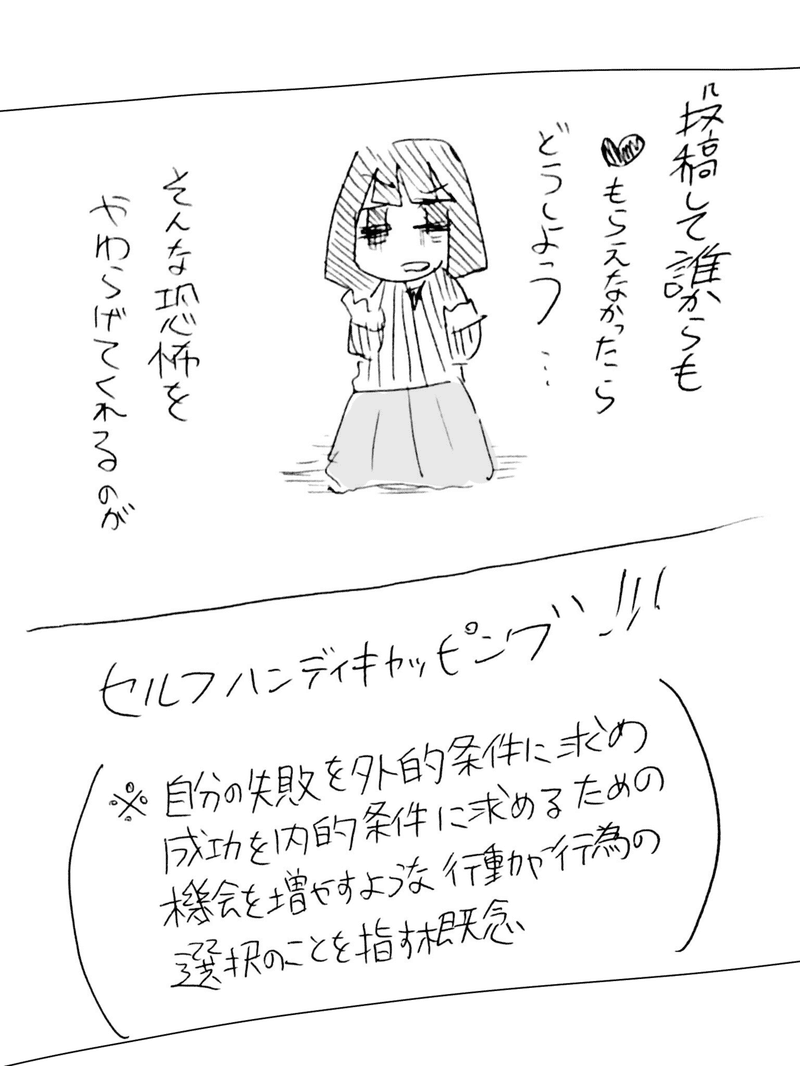 投稿して誰からも
♥もらえなかったら
どうしよう…
そんな恐怖を
やわらげてくれるのが
セルフハンディキャッピング!!!
※自分の失敗を外的条件に求め
成功を内的条件に求めるための
機会を増やすような行動や行為の
選択のことを指す概念